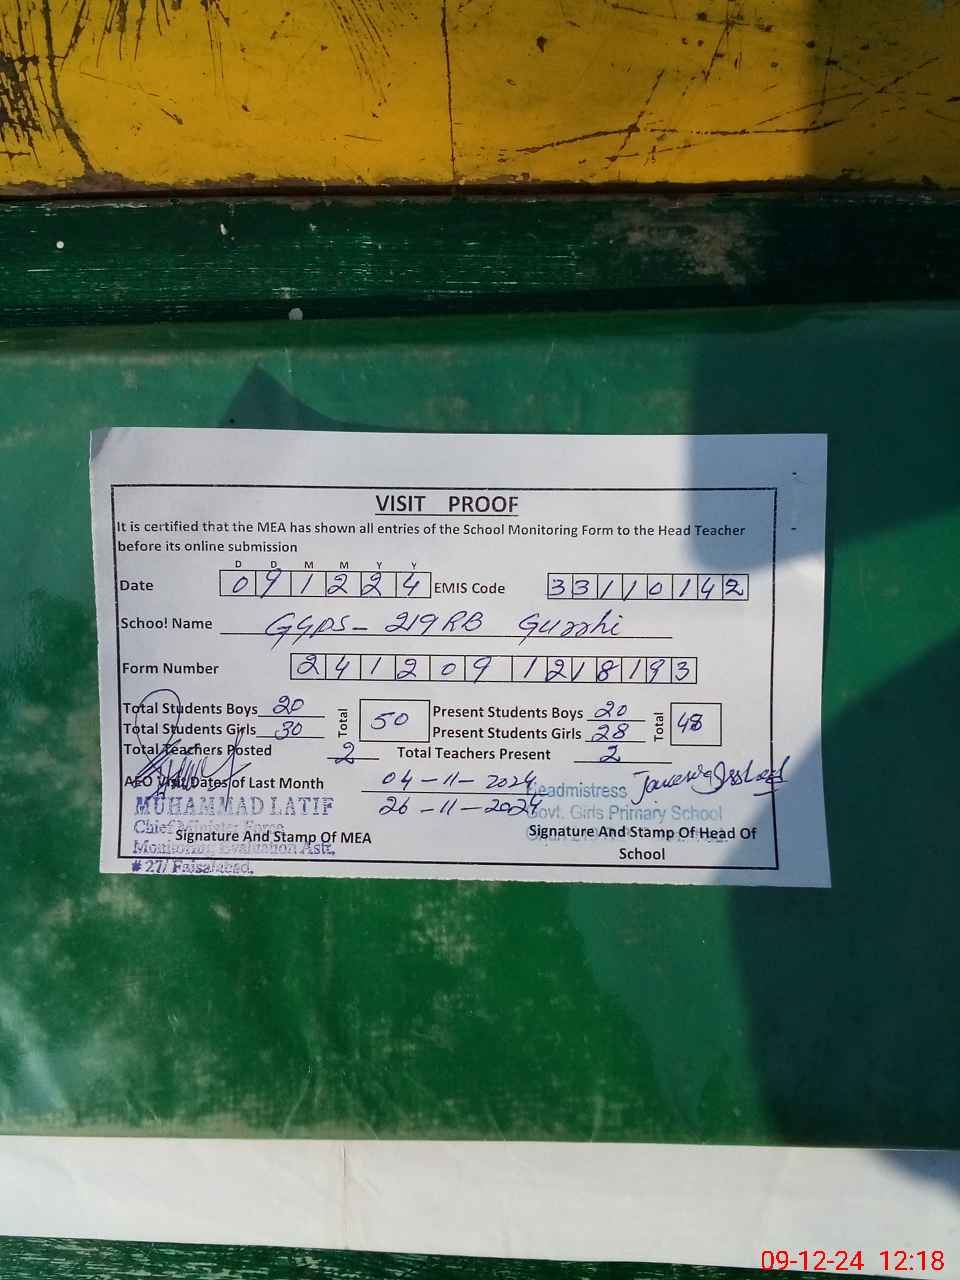 VISIT PROOF
It is certified that the MEA has shown all entries of the School Monitoring Form to the Head Teacher
before its online submission
D D M M Y Y
Date 0 9 1 2 2 4 EMIS Code 3 3 1 1 0 1 4 2
School Name GGPS - 219 RB Gurrhi
Form Number 2 4 1 2 0 9 1 2 1 8 1 9 3
Total Students Boys 20 Total 50 Present Students Boys 20 Total 48
Total Students Girls 30 Present Students Girls 28
Total Teachers Posted 2 Total Teachers Present 2
AEO Visit Dates of Last Month 04-11-2024
26-11-2024
MUHAMMAD LATIF
Chief Minister Force
Monitoring Evaluation Astt.
# 27/ Faisalabad.
Signature And Stamp Of MEA
Headmistress
Govt. Girls Primary School
Signature And Stamp Of Head Of
School
09-12-24 12:18